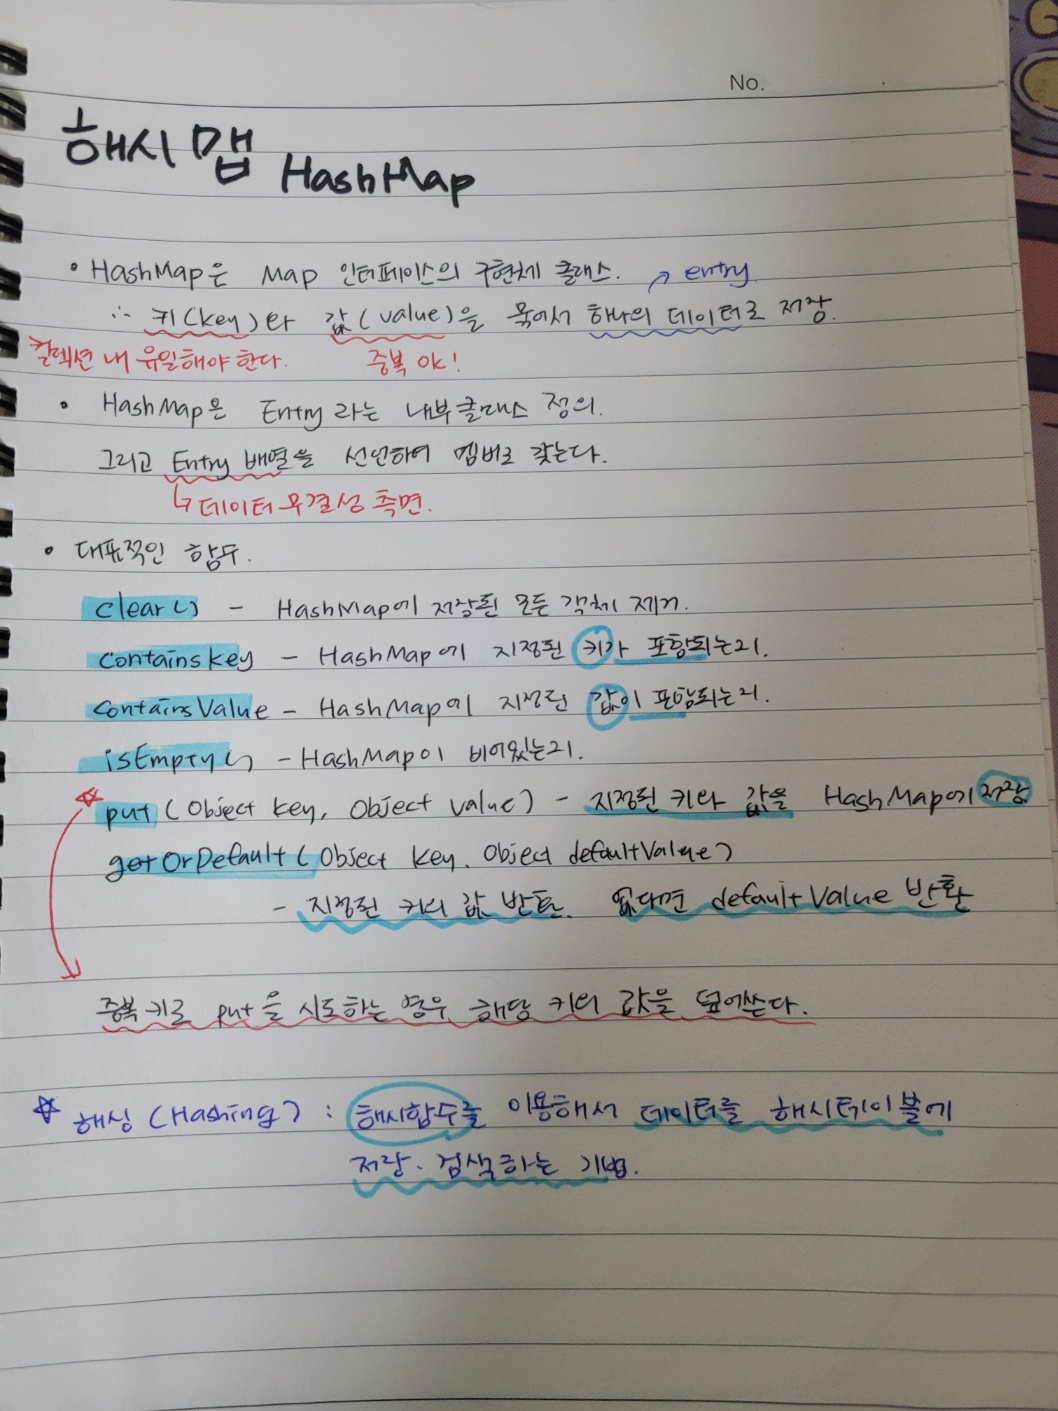 No.
해시맵 HashMap
• HashMap은 Map 인터페이스의 구현체 클래스. ↗ entry
∴ 키(key)와 값(value)을 묶어서 하나의 데이터로 저장.
컬렉션 내 유일해야 한다. 중복 OK!
• HashMap은 Entry 라는 내부클래스 정의.
그리고 Entry 배열을 선언하여 멤버로 갖는다.
↳ 데이터 무결성 측면.
• 대표적인 함수.
clear() - HashMap에 저장된 모든 객체 제거.
containskey - HashMap에 지정된 키가 포함되는지.
containsValue - HashMap에 지정된 값이 포함되는지.
isEmpty() - HashMap이 비어있는지.
☆ put (Object key, Object value) - 지정된 키와 값을 HashMap에 저장
getOrDefault (Object key. Object defaultValue)
- 지정된 키의 값 반환. 없다면 defaultValue 반환
중복 키로 put을 시도하는 경우 해당 키의 값을 덮어쓴다.
☆ 해싱 (Hashing) : 해시함수를 이용해서 데이터를 해시테이블에
저장·검색하는 기법.